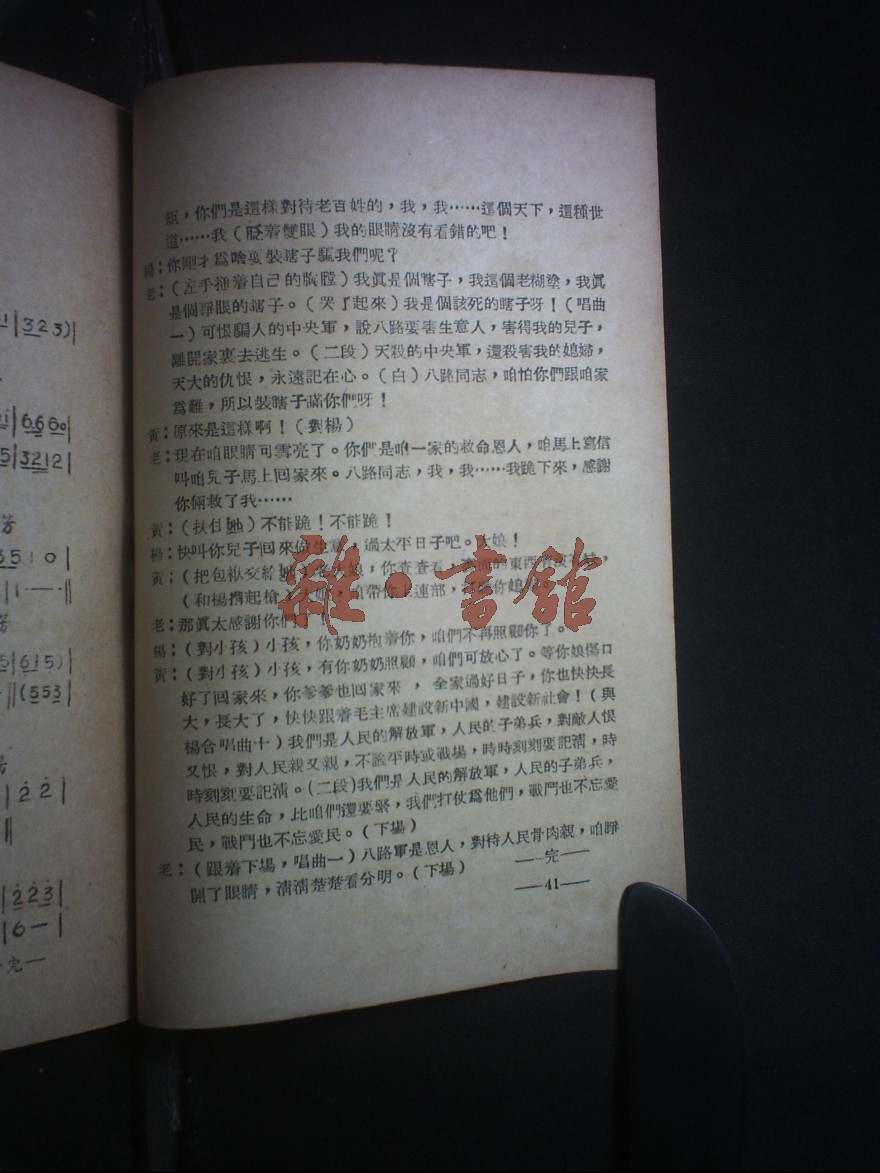 你們是這樣對待老百姓的，我，我……這個天下，這種世
道……我（眨着雙眼）我的眼睛沒有看錯的吧！
楊：你剛才爲啥要裝瞎子騙我們呢？
老：（左手捶着自己的胸膛）我眞是個瞎子，我這個老糊塗，我眞
是個睜眼的瞎子。（哭了起來）我是個該死的瞎子呀！（唱曲
一）可恨騙人的中央軍，說八路要害生意人，害得我的兒子，
離開家裏去逃生。（二段）天殺的中央軍，還殺害我的媳婦，
天大的仇恨，永遠記在心。（白）八路同志，咱怕你們跟咱家
爲難，所以裝瞎子瞞你們呀！
黃：原來是這樣啊！（對楊）
老：現在咱眼睛可雪亮了。你們是咱一家的救命恩人，咱馬上寫信
叫咱兒子馬上回家來。八路同志，我，我……我跪下來，感謝
你倆救了我……
黃：（扶住她）不能跪！不能跪！
楊：快叫你兒子回來做生意，過太平日子吧。大娘！
黃：（把包袱交給她）大娘，你查查看，裏面的東西
（和楊揹起槍）大娘，咱帶你上連部，
老：那眞太感謝你們了！
楊：（對小孩）小孩，你奶奶抱着你，咱們不再照顧你了。
黃：（對小孩）小孩，有你奶奶照顧，咱們可放心了。等你娘傷口
好了回家來，你爹爹也回家來，全家過好日子，你也快快長
大，長大了，快快跟着毛主席建設新中國，建設新社會！（與
楊合唱曲十）我們是人民的解放軍，人民的子弟兵，對敵人恨
又恨，對人民親又親，不論平時或戰場，時時刻刻要記淸，時
時刻刻要記淸。（二段）我們是人民的解放軍，人民的子弟兵，
人民的生命，比咱們還要緊，我們打仗爲他們，戰鬥也不忘愛
民，戰鬥也不忘愛民。（下場）
老：（跟着下場，唱曲一）八路軍是恩人，對待人民骨肉親，咱睜
開了眼睛，淸淸楚楚看分明。（下場）
—完—
—41—
雜·書館
323)
6660
3212
芳
3510
615)
(553
22
223
6—
完